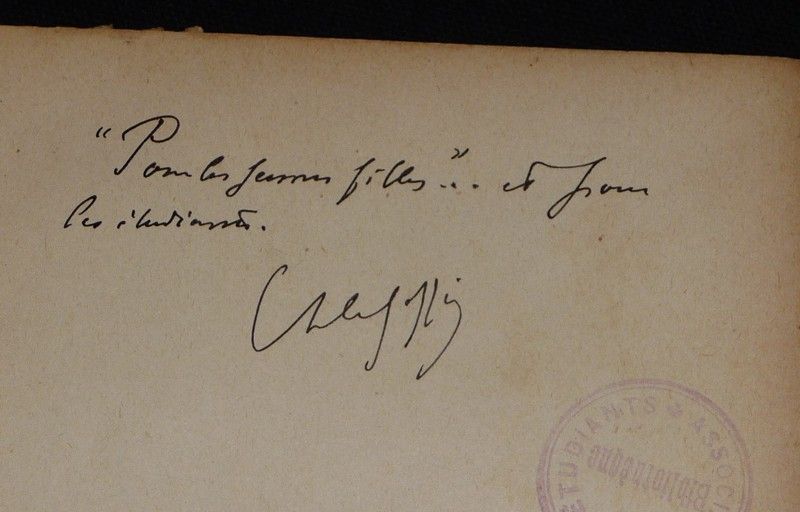 "Pour les jeunes filles"... et pour
les étudiants.
ETUDIANTS ASSOCI
Bibliothèque